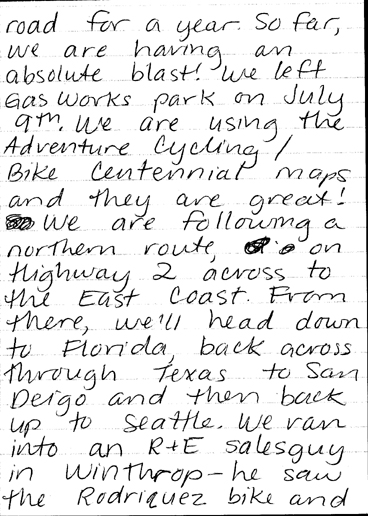 road for a year. So far,
we are having an
absolute blast! We left
Gas Works park on July
9th. We are using the
Adventure Cycling/
Bike Centennial maps
and they are great!
We are following a
northern route, on
Highway 2 across to
the East Coast. From
there, we'll head down
to Florida, back across
through Texas to San
Deigo and then back
up to Seattle. We ran
into an R+E salesguy
in Winthrop - he saw
the Rodriquez bike and